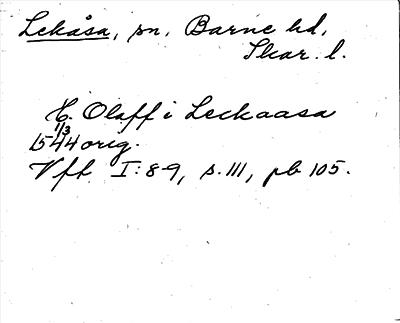 Lekåsa, sn, Barne hd,
Skar. l.
H. Olaff i Leckaasa
1/3
1544 orig.
Vft I: 8-9, s. 111, pb 105.